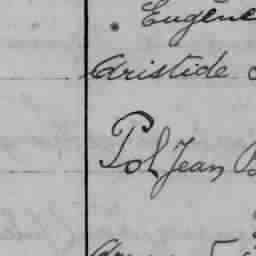 Eugène
Aristide
Pol Jean